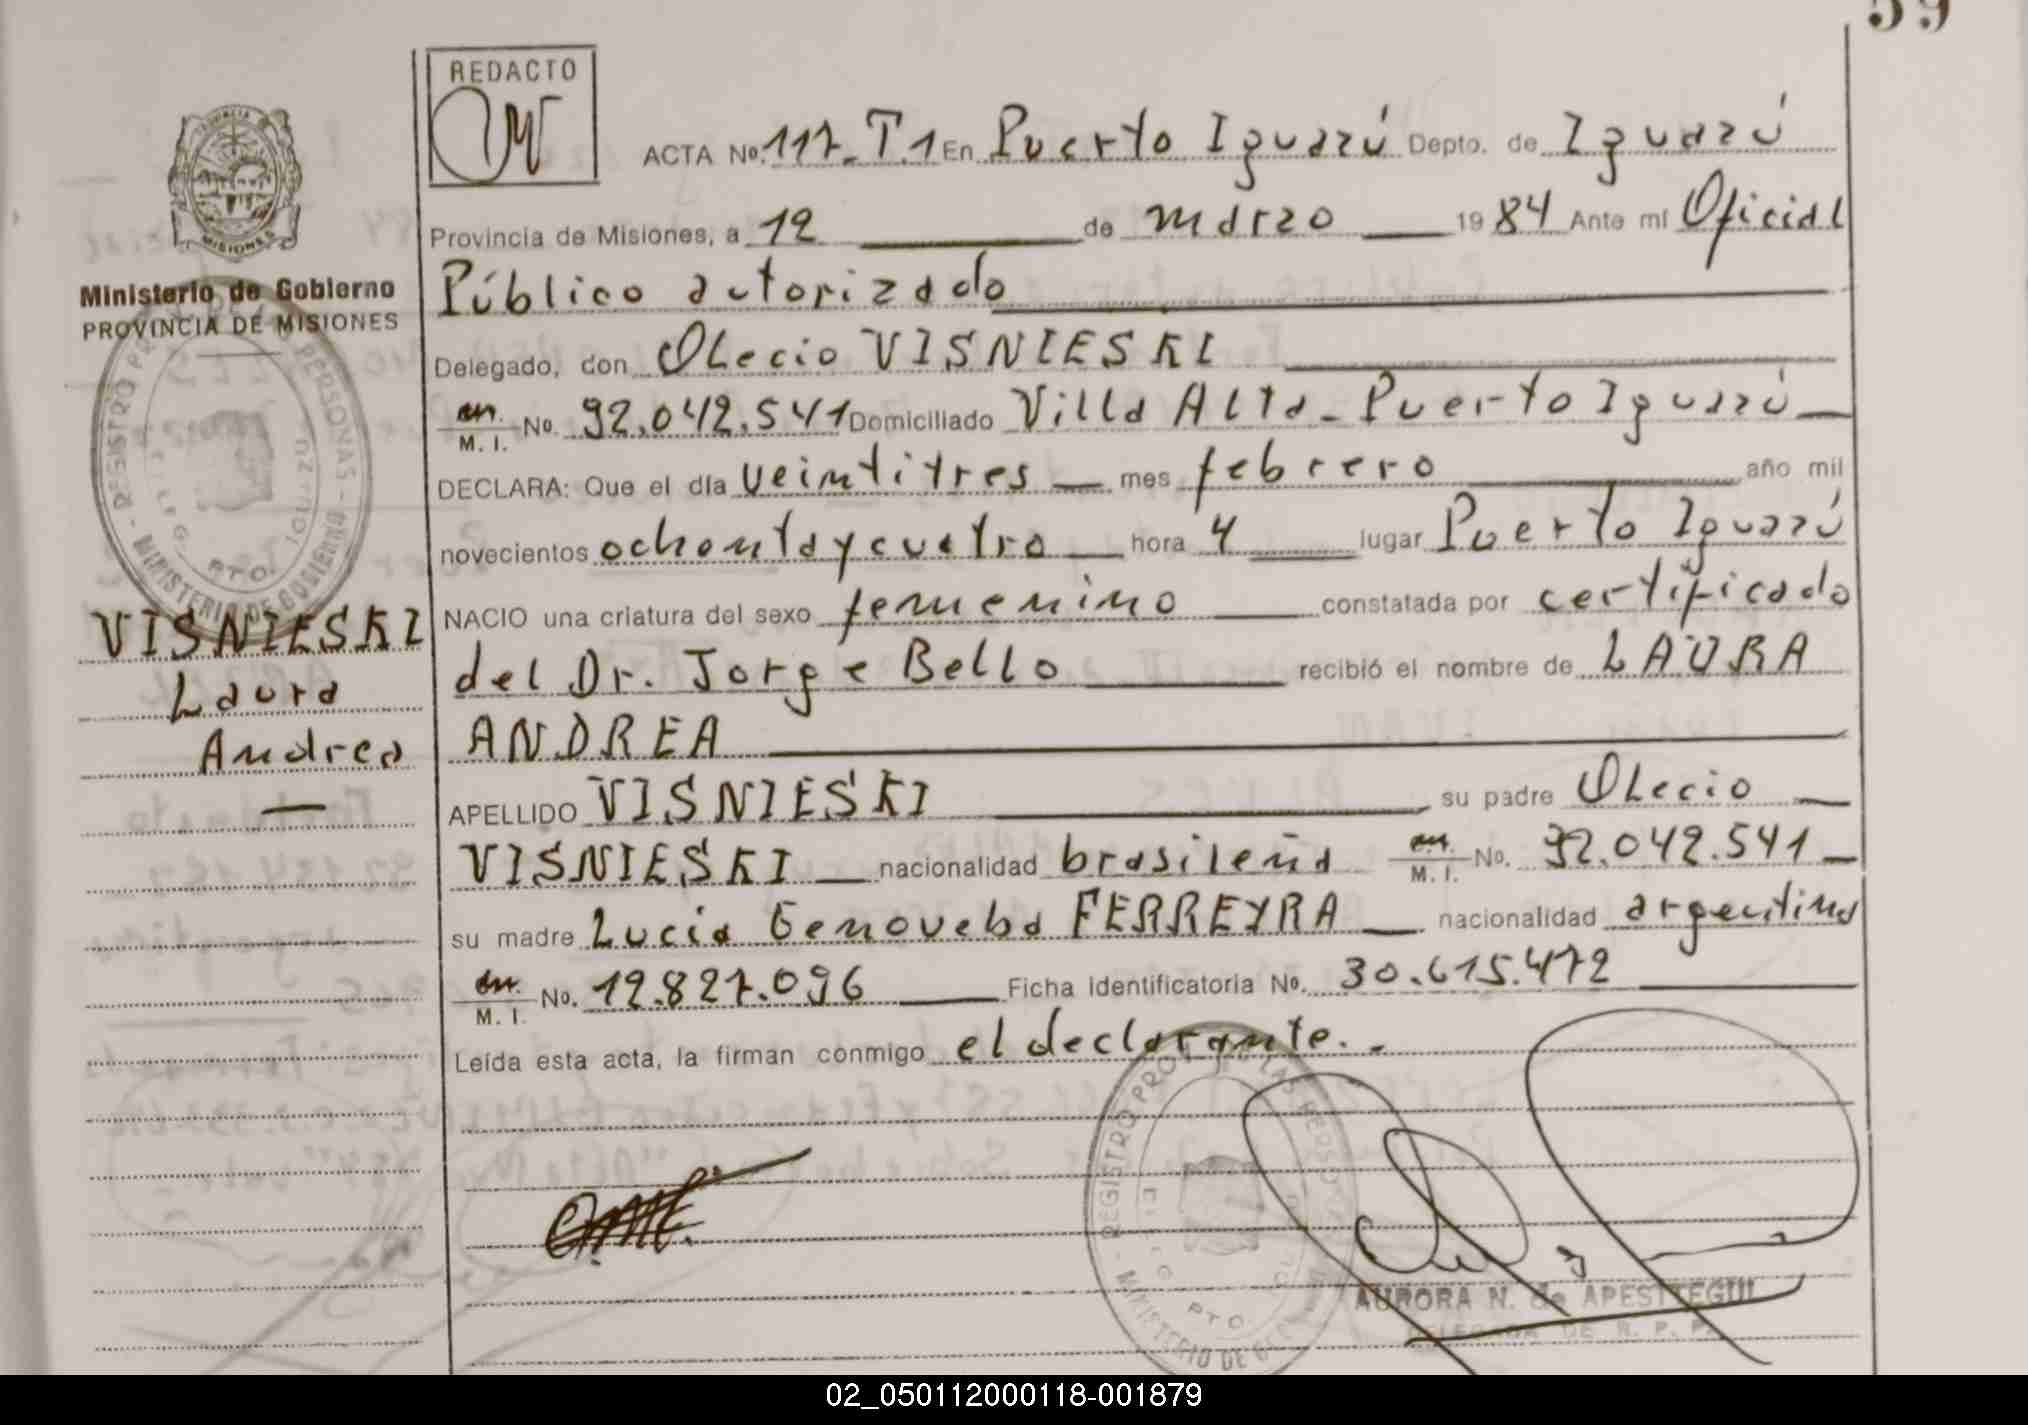 59
REDACTO
ACTA No. 117-T.1 En Puerto Iguazú Depto. de Iguazú
Provincia de Misiones, a 12 de marzo 1984 Ante mí Oficial
Público autorizado
Ministerio de Gobierno
PROVINCIA DE MISIONES
Delegado, don Olecio VISNIESKI
M. I. No. 92.042.541 Domiciliado Villa Alta - Puerto Iguazú
DECLARA: Que el día veintitres mes febrero año mil
novecientos ochenta y cuatro hora 4 lugar Puerto Iguazú
NACIO una criatura del sexo femenino constatada por certificado
VISNIESKI
Laura
Andrea
del Dr. Jorge Bello recibió el nombre de LAURA
ANDREA
APELLIDO VISNIESKI su padre Olecio
VISNIESKI nacionalidad brasileña M. I. No. 92.042.541
su madre Lucia Genoveba FERREYRA nacionalidad argentina
M. I. No. 12.827.096 Ficha identificatoria No. 30.615.472
Leída esta acta, la firman conmigo el declarante.-
AURORA N. de APESTTEGUI
DELEGADA DE R. P. P.
02_050112000118-001879